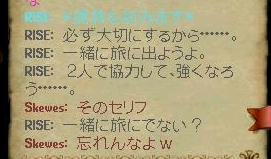 な
RISE: 必ず大切にするから……。
RISE: 一緒に旅に出ようよ。
RISE: 2人で協力して、強くなろ
う……。
Skewes: そのセリフ
RISE: 一緒に旅にでない？
Skewes: 忘れんなよｗ